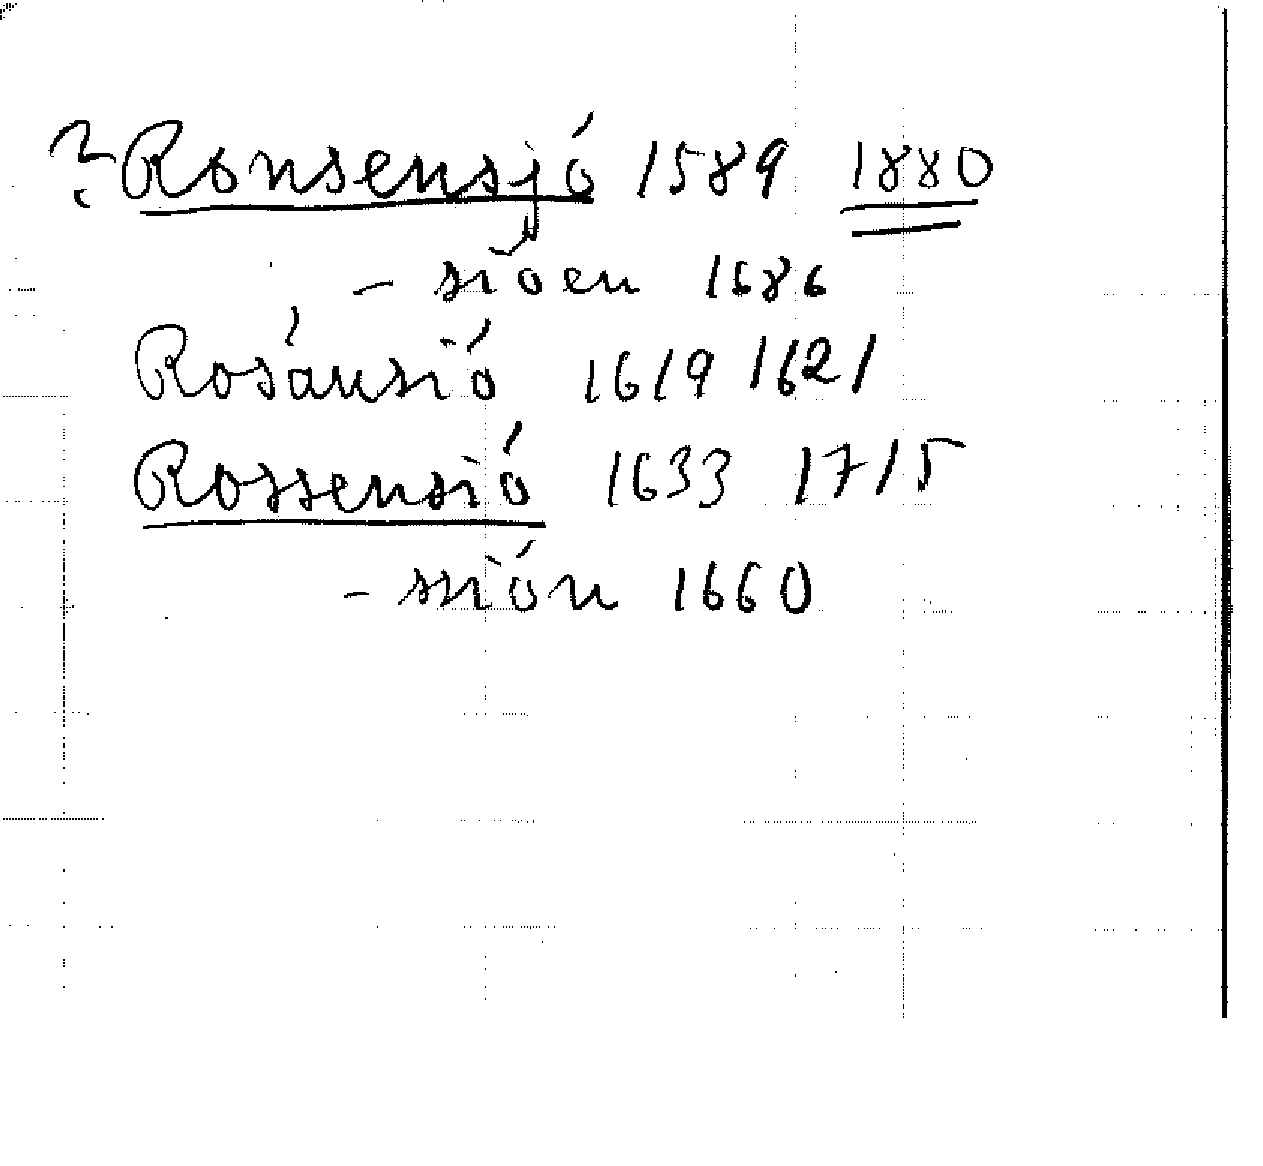 ? Ronsensjó 1589 1880
- sióen 1686
Rosánsió 1619 1621
Rossensió 1633 1715
- sión 1660